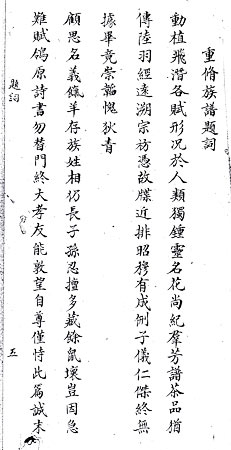 重脩族譜題詞
動植飛潛各賦形況於人類獨鍾靈名花尚紀羣芳譜茶品猶
傳陸羽經遠溯宗祊憑故牒近排昭穆有成例子儀仁傑終無
據畢竟崇韜愧狄青
顧思名義餼羊存族姓相仍長子孫忍擅多藏餘鼠壤豈因急
難賦鴒原詩書勿替門終大孝友能敦望自尊僅恃此篇誠末
題詞
五